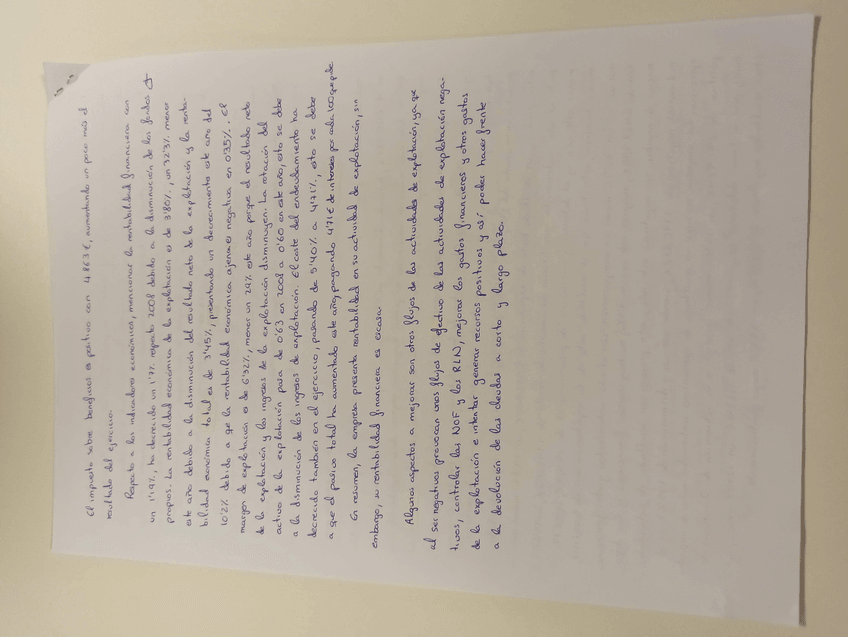 El impuesto sobre beneficios es positivo con 4.863 €, aumentando un poco más el
resultado del ejercicio.
Respecto a los indicadores económicos, mencionar la rentabilidad financiera con
un 1'19%, ha decrecido un 1'7% respecto 2008 debido a la disminución de los fondos
propios. La rentabilidad económica de la explotación es de 3'80%, un 32'3% menor
este año debido a la disminución del resultado neto de la explotación y la renta-
bilidad económica total es de 3'45%, presentando un decrecimiento este año del
10'2% debido a que la rentabilidad económica ajena es negativa en 0'35%. El
margen de explotación es de 6'32%, menor un 29% este año porque el resultado neto
de la explotación y los ingresos de la explotación disminuyen. La rotación del
activo de la explotación pasa de 0'63 en 2008 a 0'60 en este año, esto se debe
a la disminución de los ingresos de explotación. El coste del endeudamiento ha
decrecido también en el ejercicio, pasando de 5'40% a 4'71%, esto se debe
a que el pasivo total ha aumentado este año, pagando 4'71 € de intereses por cada 100 que pide
En resumen, la empresa presenta rentabilidad en su actividad de explotación, sin
embargo, su rentabilidad financiera es escasa.
Algunos aspectos a mejorar son otros flujos de las actividades de explotación, ya que
al ser negativos provocan unos flujos de efectivo de las actividades de explotación nega-
tivos, controlar las NOF y los RLN, mejorar los gastos financieros y otros gastos
de la explotación e intentar generar recursos positivos y así poder hacer frente
a la devolución de las deudas a corto y largo plazo.